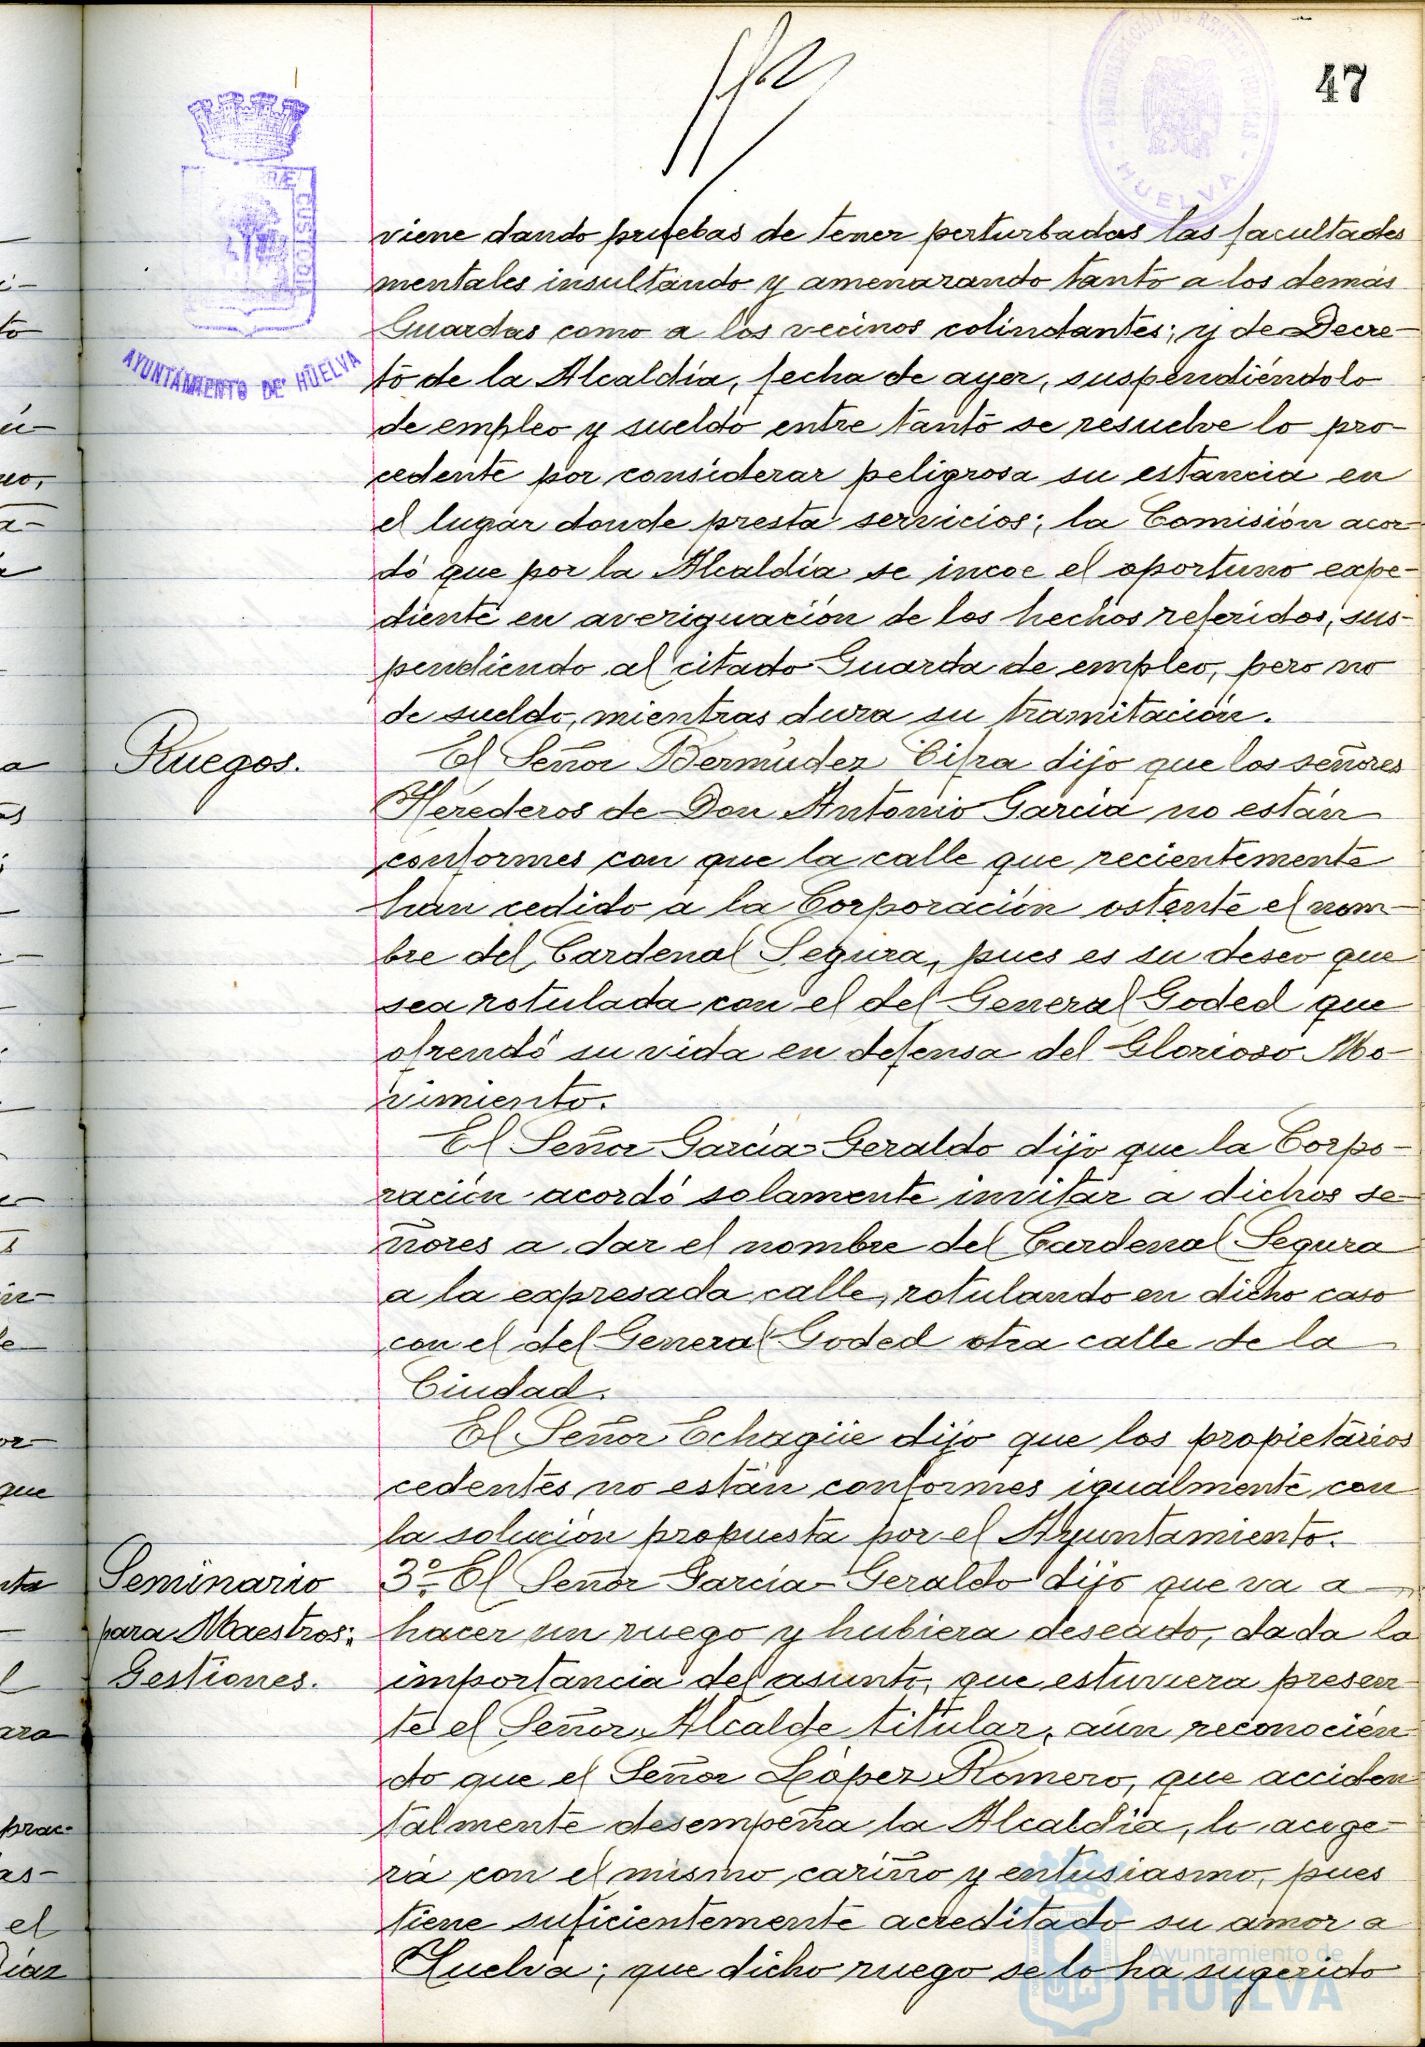 47
ADMINISTRACIÓN DE RENTAS PÚBLICAS
- HUELVA -
CUSTODIA
AYUNTAMIENTO DE HUELVA
viene dando pruebas de tener perturbadas las facultades
mentales insultando y amenazando tanto a los demás
Guardas como a los vecinos colindantes; y de Decre-
to de la Alcaldía, fecha de ayer, suspendiéndolo
de empleo y sueldo entre tanto se resuelve lo pro-
cedente por considerar peligrosa su estancia en
el lugar donde presta servicios; la Comisión acor-
dó que por la Alcaldía se incoe el oportuno expe-
diente en averiguación de los hechos referidos, sus-
pendiendo al citado Guarda de empleo, pero no
de sueldo, mientras dura su tramitación.
Ruegos.
El Señor Bermúdez Cifra dijo que los señores
Herederos de Don Antonio García no están
conformes con que la calle que recientemente
han cedido a la Corporación ostente el nom-
bre del Cardenal Segura, pues es su deseo que
sea rotulada con el del General Goded que
ofrendó su vida en defensa del Glorioso Mo-
vimiento.
El Señor García-Geraldo dijo que la Corpo-
ración acordó solamente invitar a dichos se-
ñores a dar el nombre del Cardenal Segura
a la expresada calle, rotulando en dicho caso
con el del General Goded otra calle de la
Ciudad.
El Señor Echagüe dijo que los propietarios
cedentes no están conformes igualmente con
la solución propuesta por el Ayuntamiento.
Seminario
para Maestros:
Gestiones.
3º- El Señor García-Geraldo dijo que va a
hacer un ruego y hubiera deseado, dada la
importancia del asunto, que estuviera presen-
te el Señor Alcalde titular, aún reconocien-
do que el Señor López Romero, que acciden
talmente desempeña la Alcaldía, lo acoge-
rá con el mismo cariño y entusiasmo, pues
tiene suficientemente acreditado su amor a
Huelva; que dicho ruego se lo ha sugerido
Ayuntamiento de
HUELVA